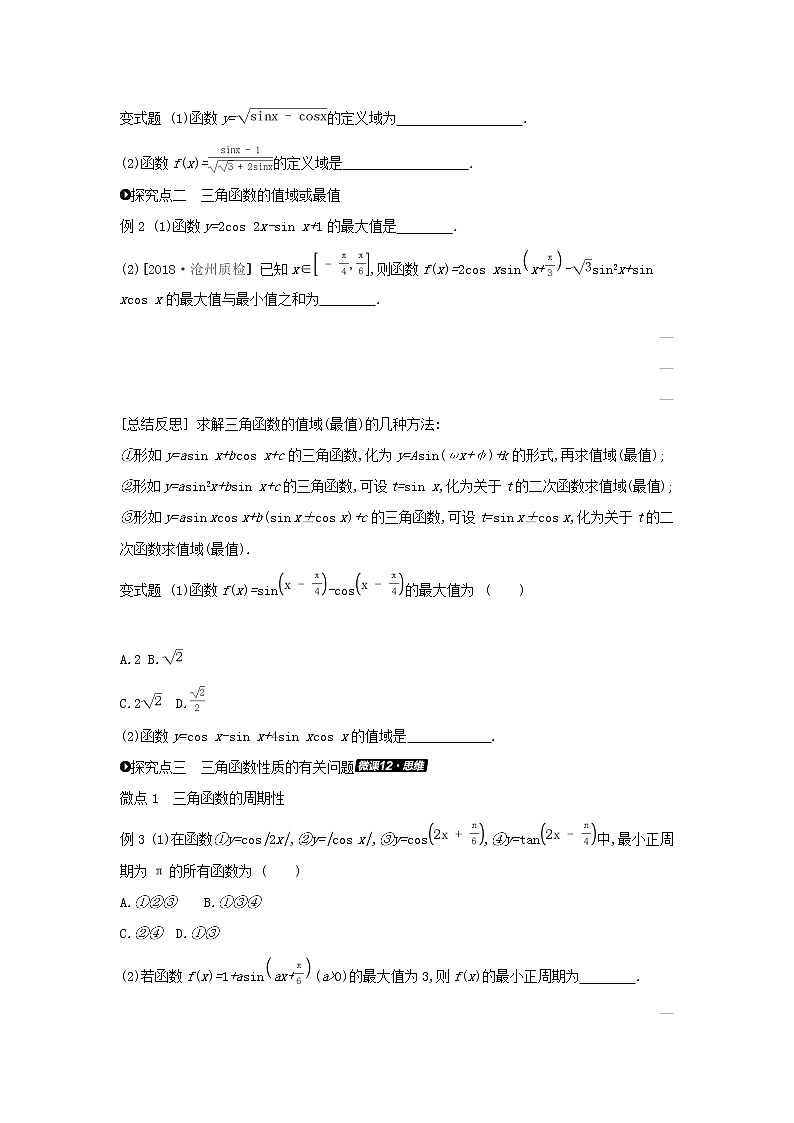 变式题 (1)函数 y=√(sinx - cosx)的定义域为__________________.
(2)函数 f(x)=(sinx - 1)/√(√3 + 2sinx)的定义域是__________________.
探究点二 三角函数的值域或最值
例 2 (1)函数 y=2cos 2x-sin x+1 的最大值是________.
(2)[2018·沧州质检] 已知 x∈[- π/4, π/6],则函数 f(x)=2cos xsin(x+π/3)-√3sin2x+sin
xcos x 的最大值与最小值之和为________.
[总结反思] 求解三角函数的值域(最值)的几种方法:
①形如 y=asin x+bcos x+c 的三角函数,化为 y=Asin(ωx+φ)+k 的形式,再求值域(最值);
②形如 y=asin2x+bsin x+c 的三角函数,可设 t=sin x,化为关于 t 的二次函数求值域(最值);
③形如 y=asin xcos x+b(sin x±cos x)+c 的三角函数,可设 t=sin x±cos x,化为关于 t 的二
次函数求值域(最值).
变式题 (1)函数 f(x)=sin(x - π/4)-cos(x - π/4)的最大值为 ( )
A.2 B.√2
C.2√2 D.√2/2
(2)函数 y=cos x-sin x+4sin xcos x 的值域是____________.
探究点三 三角函数性质的有关问题 微课12·思维
微点 1 三角函数的周期性
例 3 (1)在函数①y=cos|2x|,②y=|cos x|,③y=cos(2x + π/6),④y=tan(2x - π/4)中,最小正周
期为 π 的所有函数为 ( )
A.①②③ B.①③④
C.②④ D.①③
(2)若函数 f(x)=1+asin(ax+π/6)(a>0)的最大值为 3,则 f(x)的最小正周期为________.